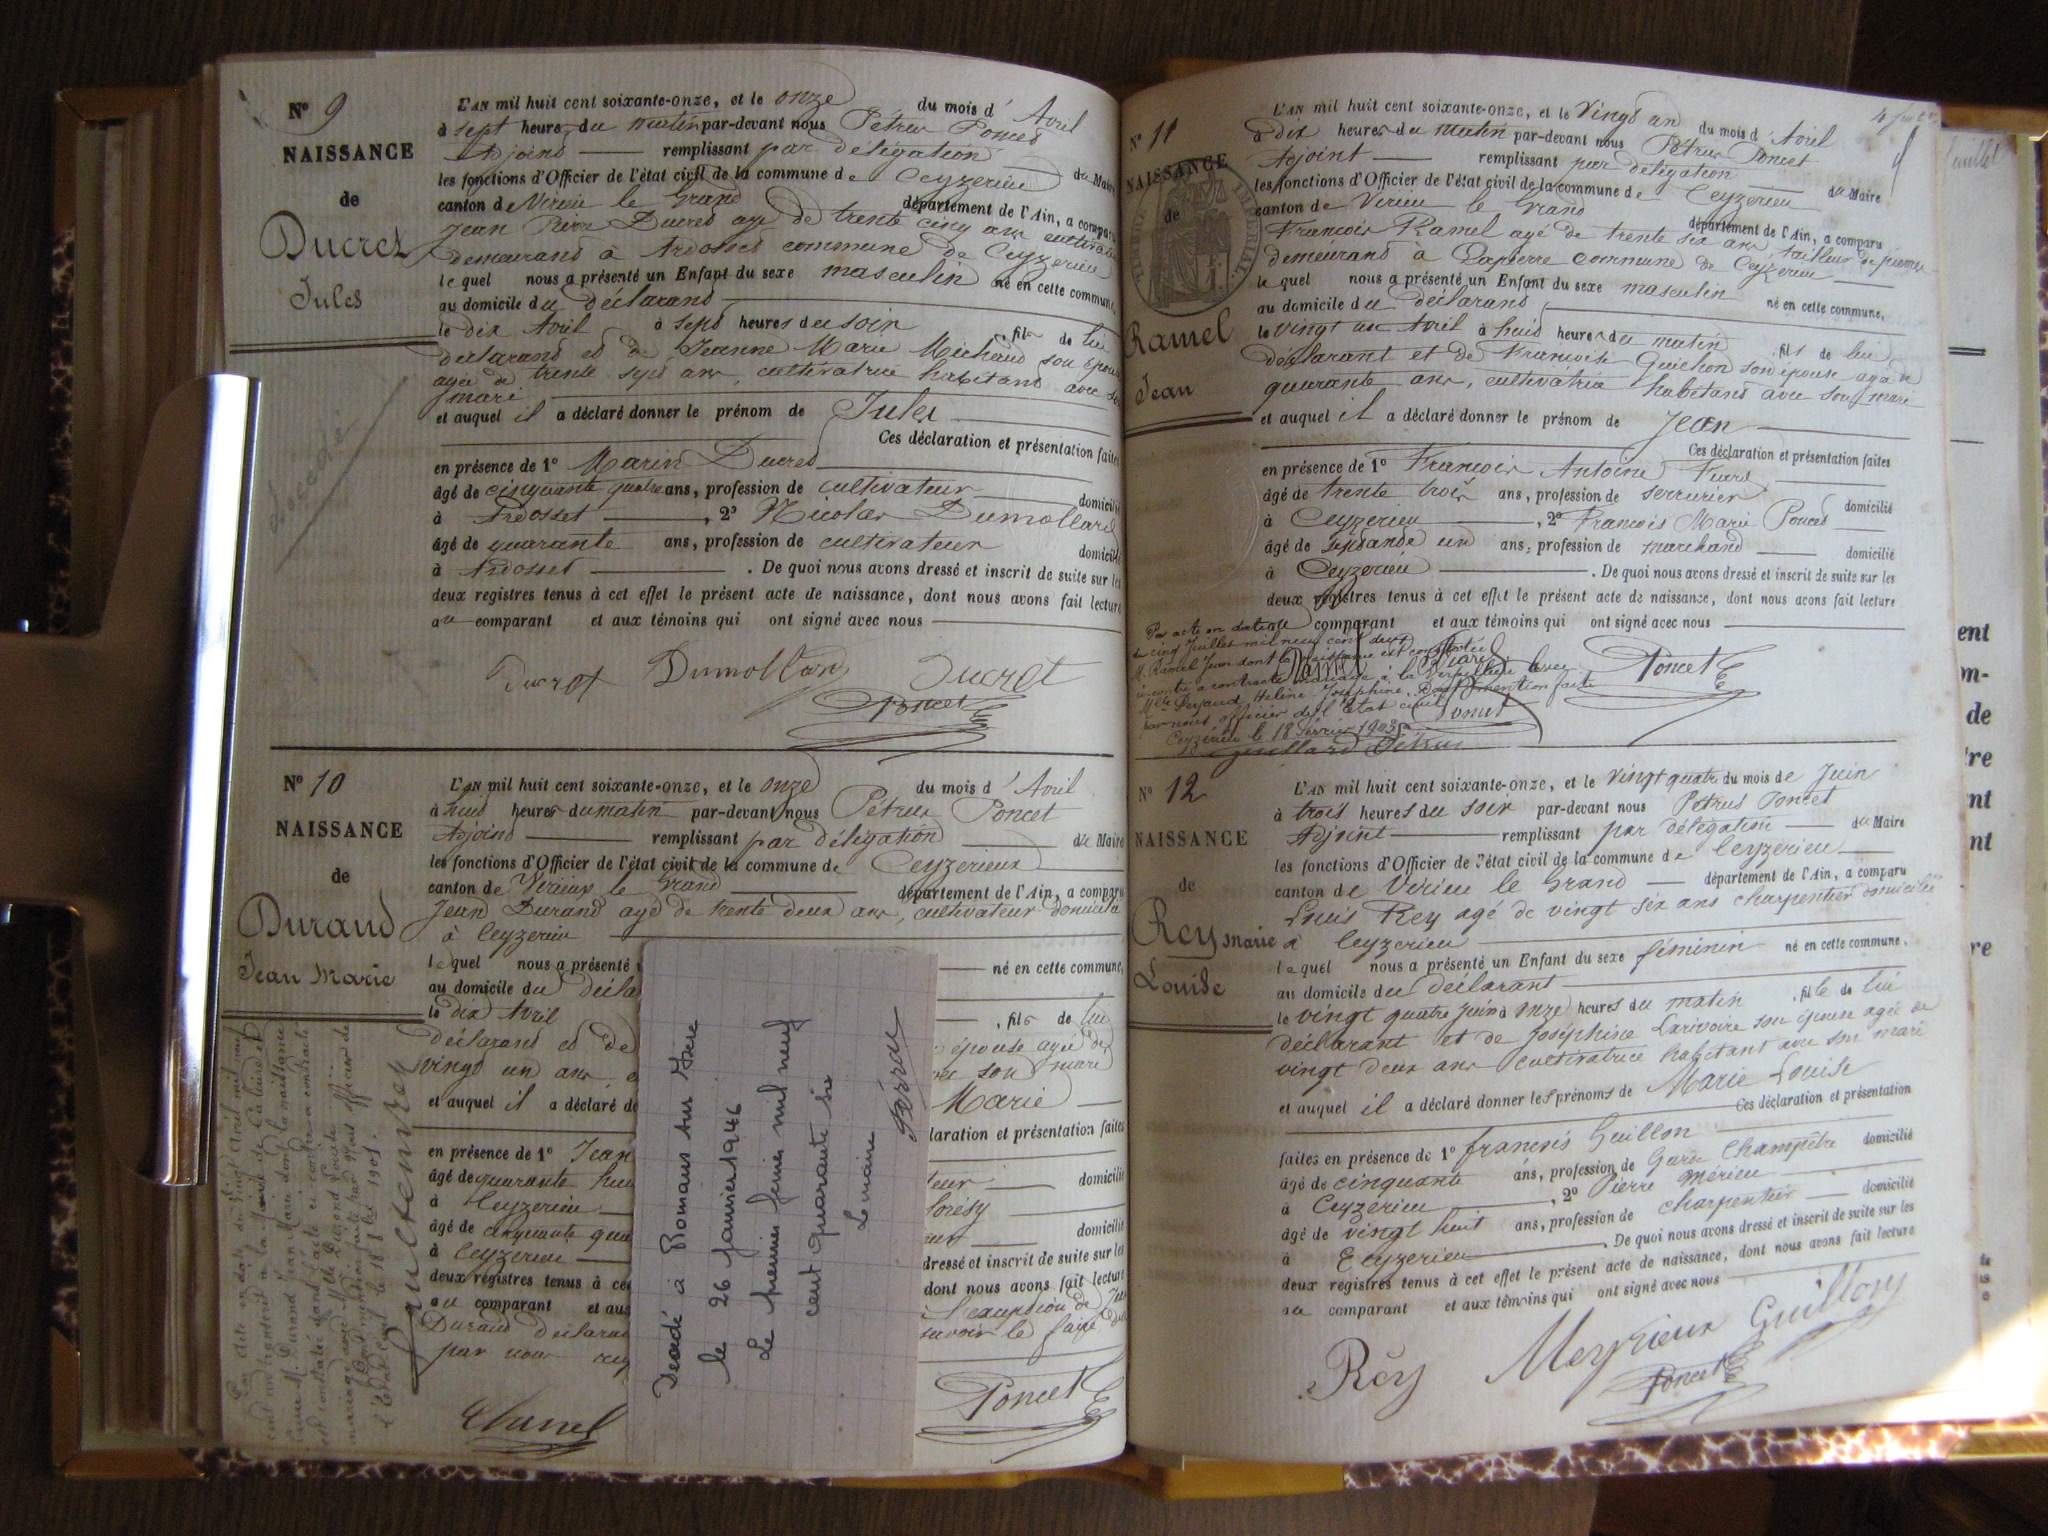 N° 9
NAISSANCE
de
Ducret
Jules
décédé
L'AN mil huit cent soixante-onze, et le onze du mois d' Avril
à sept heures du matin par-devant nous Pétrus Poncet
Adjoint remplissant par délégation du Maire
les fonctions d'Officier de l'état civil de la commune de Ceyzerieu
canton de Virieu le Grand département de l'Ain, a comparu
Jean Pierre Ducret agé de trente cinq ans cultivateur
demeurant à Ardosset commune de Ceyzerieu
le quel nous a présenté un Enfant du sexe masculin né en cette commune,
au domicile du déclarant
le dix Avril à sept heures du soir , fils de lui
déclarant et de Jeanne Marie Michaud son épouse
agée de trente sept ans, cultivatrice habitant avec son
mari
et auquel il a déclaré donner le prénom de Jules
Ces déclaration et présentation faites
en présence de 1° Marin Ducret
âgé de cinquante quatre ans, profession de cultivateur domicilié
à Ardosset , 2° Nicolas Dumollard
âgé de quarante ans, profession de cultivateur domicilié
à Ardosset . De quoi nous avons dressé et inscrit de suite sur les
deux registres tenus à cet effet le présent acte de naissance, dont nous avons fait lecture
au comparant et aux témoins qui ont signé avec nous
Ducret Dumollard Ducret
Poncet
N° 10
NAISSANCE
de
Durand
Jean Marie
L'AN mil huit cent soixante-onze, et le onze du mois d' Avril
à huit heures du matin par-devant nous Pétrus Poncet
Adjoint remplissant par délégation du Maire
les fonctions d'Officier de l'état civil de la commune de Ceyzerieux
canton de Virieux le Grand département de l'Ain, a comparu
Jean Durand agé de trente deux ans, cultivateur domicilié
à Ceyzerieu
le quel nous a présenté né en cette commune,
au domicile du décla
le dix Avril , fils de lui
déclarant et de épouse agée de
vingt un ans, son mari
et auquel il a déclaré do Marie
laration et présentation faites
en présence de 1° Jean
âgé de quarante hui teur domicilié
à Ceyzerieu
âgé de cinquante qua domicilié
à Ceyzerieu dressé et inscrit de suite sur les
deux registres tenus à cet dont nous avons fait lecture
au comparant et aux l'exception de
Durand déclarant savoir le faire
par nous
Poncet
Décédé à Romans sur Isère
le 26 janvier 1946
Le premier février mil neuf
cent quarante six
Le maire
N° 11
NAISSANCE
de
TIMBRE IMPERIAL
Ramel
Jean
L'AN mil huit cent soixante-onze, et le Vingt un du mois d' Avril
à dix heures du matin par-devant nous Pétrus Poncet
Adjoint remplissant par délégation du Maire
les fonctions d'Officier de l'état civil de la commune de Ceyzerieu
canton de Virieu le Grand département de l'Ain, a comparu
François Ramel agé de trente six ans tailleur de pierres
demeurant à Lapierre commune de Ceyzerieu
le quel nous a présenté un Enfant du sexe masculin né en cette commune,
au domicile du déclarant
le vingt un Avril à huit heures du matin , fils de lui
déclarant et de Françoise Guichon son épouse agée de
quarante ans, cultivatrice habitant avec son mari
et auquel il a déclaré donner le prénom de Jean
Ces déclaration et présentation faites
en présence de 1° François Antoine
âgé de trente trois ans, profession de serrurier domicilié
à Ceyzerieu , 2° François Marie Poncet
âgé de septante un ans, profession de marchand domicilié
à Ceyzerieu . De quoi nous avons dressé et inscrit de suite sur les
deux registres tenus à cet effet le présent acte de naissance, dont nous avons fait lecture
au comparant et aux témoins qui ont signé avec nous
Ramel Poncet
Par acte en date du
cinq Juillet mil neuf cent deux
M. Ramel Jean dont la naissance est constatée
ci contre a contracté mariage à la avec
Mlle Hélène Joséphine. Dont mention faite
par nous officier de l'Etat civil
Ceyzérieu le 18 Février 1903
Poncet
N° 12
NAISSANCE
de
Rey Marie
Louise
L'AN mil huit cent soixante-onze, et le vingt quatre du mois de Juin
à trois heures du soir par-devant nous Pétrus Poncet
Adjoint remplissant par délégation du Maire
les fonctions d'Officier de l'état civil de la commune de Ceyzerieu
canton de Virieu le Grand département de l'Ain, a comparu
Louis Rey agé de vingt six ans charpentier domicilié
à Ceyzerieu
le quel nous a présenté un Enfant du sexe féminin né en cette commune,
au domicile du déclarant
le vingt quatre Juin à onze heures du matin , fille de lui
déclarant et de Joséphine Larivoire son épouse agée de
vingt deux ans cultivatrice habitant avec son mari
et auquel il a déclaré donner les prénoms de Marie Louise
Ces déclaration et présentation
faites en présence de 1° françois Guillon
âgé de cinquante ans, profession de Garde Champêtre domicilié
à Ceyzerieu , 2° Pierre Mérieu
âgé de vingt huit ans, profession de charpentier domicilié
à Ceyzerieu . De quoi nous avons dressé et inscrit de suite sur les
deux registres tenus à cet effet le présent acte de naissance, dont nous avons fait lecture
au comparant et aux témoins qui ont signé avec nous
Rey Meyrieux Guillon
Poncet